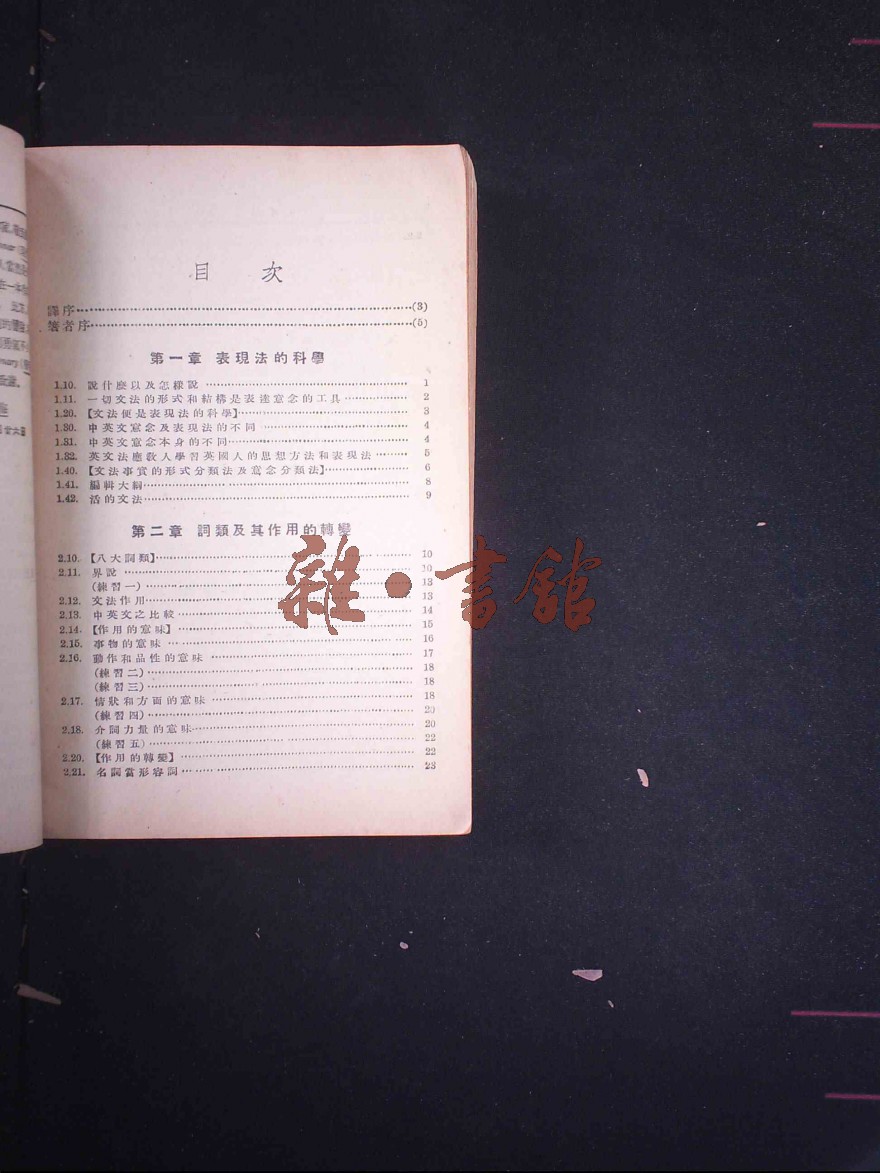 目 次
譯序(3)
著者序(5)
第一章 表現法的科學
1.10. 說什麼以及怎樣說 1
1.11. 一切文法的形式和結構是表達意念的工具 2
1.20. 【文法便是表現法的科學】 3
1.30. 中英文意念及表現法的不同 4
1.31. 中英文意念本身的不同 4
1.32. 英文法應敎人學習英國人的思想方法和表現法 5
1.40. 【文法事實的形式分類法及意念分類法】 6
1.41. 編輯大綱 8
1.42. 活的文法 9
第二章 詞類及其作用的轉變
2.10. 【八大詞類】 10
2.11. 界說 10
(練習一) 13
2.12. 文法作用 13
2.13. 中英文之比較 14
2.14. 【作用的意味】 15
2.15. 事物的意味 16
2.16. 動作和品性的意味 17
(練習二) 18
(練習三) 18
2.17. 情狀和方面的意味 18
(練習四) 20
2.18. 介詞力量的意味 20
(練習五) 22
2.20. 【作用的轉變】 22
2.21. 名詞當形容詞 23
雜·書舘